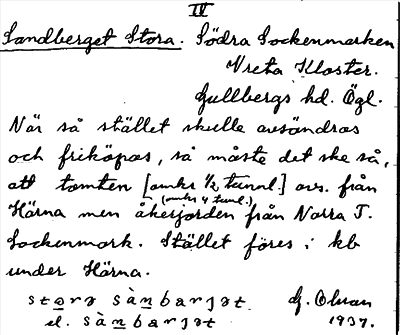 IV
Sandberget Stora. Södra Sockenmarken
Vreta Kloster.
Gullbergs hd. Ögl.
När så stället skulle avsöndras
och friköpas, så måste det ske så,
att tomten [omkr ½ tunnl.] avs. från
(omkr 4 tunl.)
Härna men åkerjorden från Norra T.
Sockenmark. Stället föres i kb
under Härna.
storə sàn̲bærjət. G.
el. sàn̲bærjət 1937.